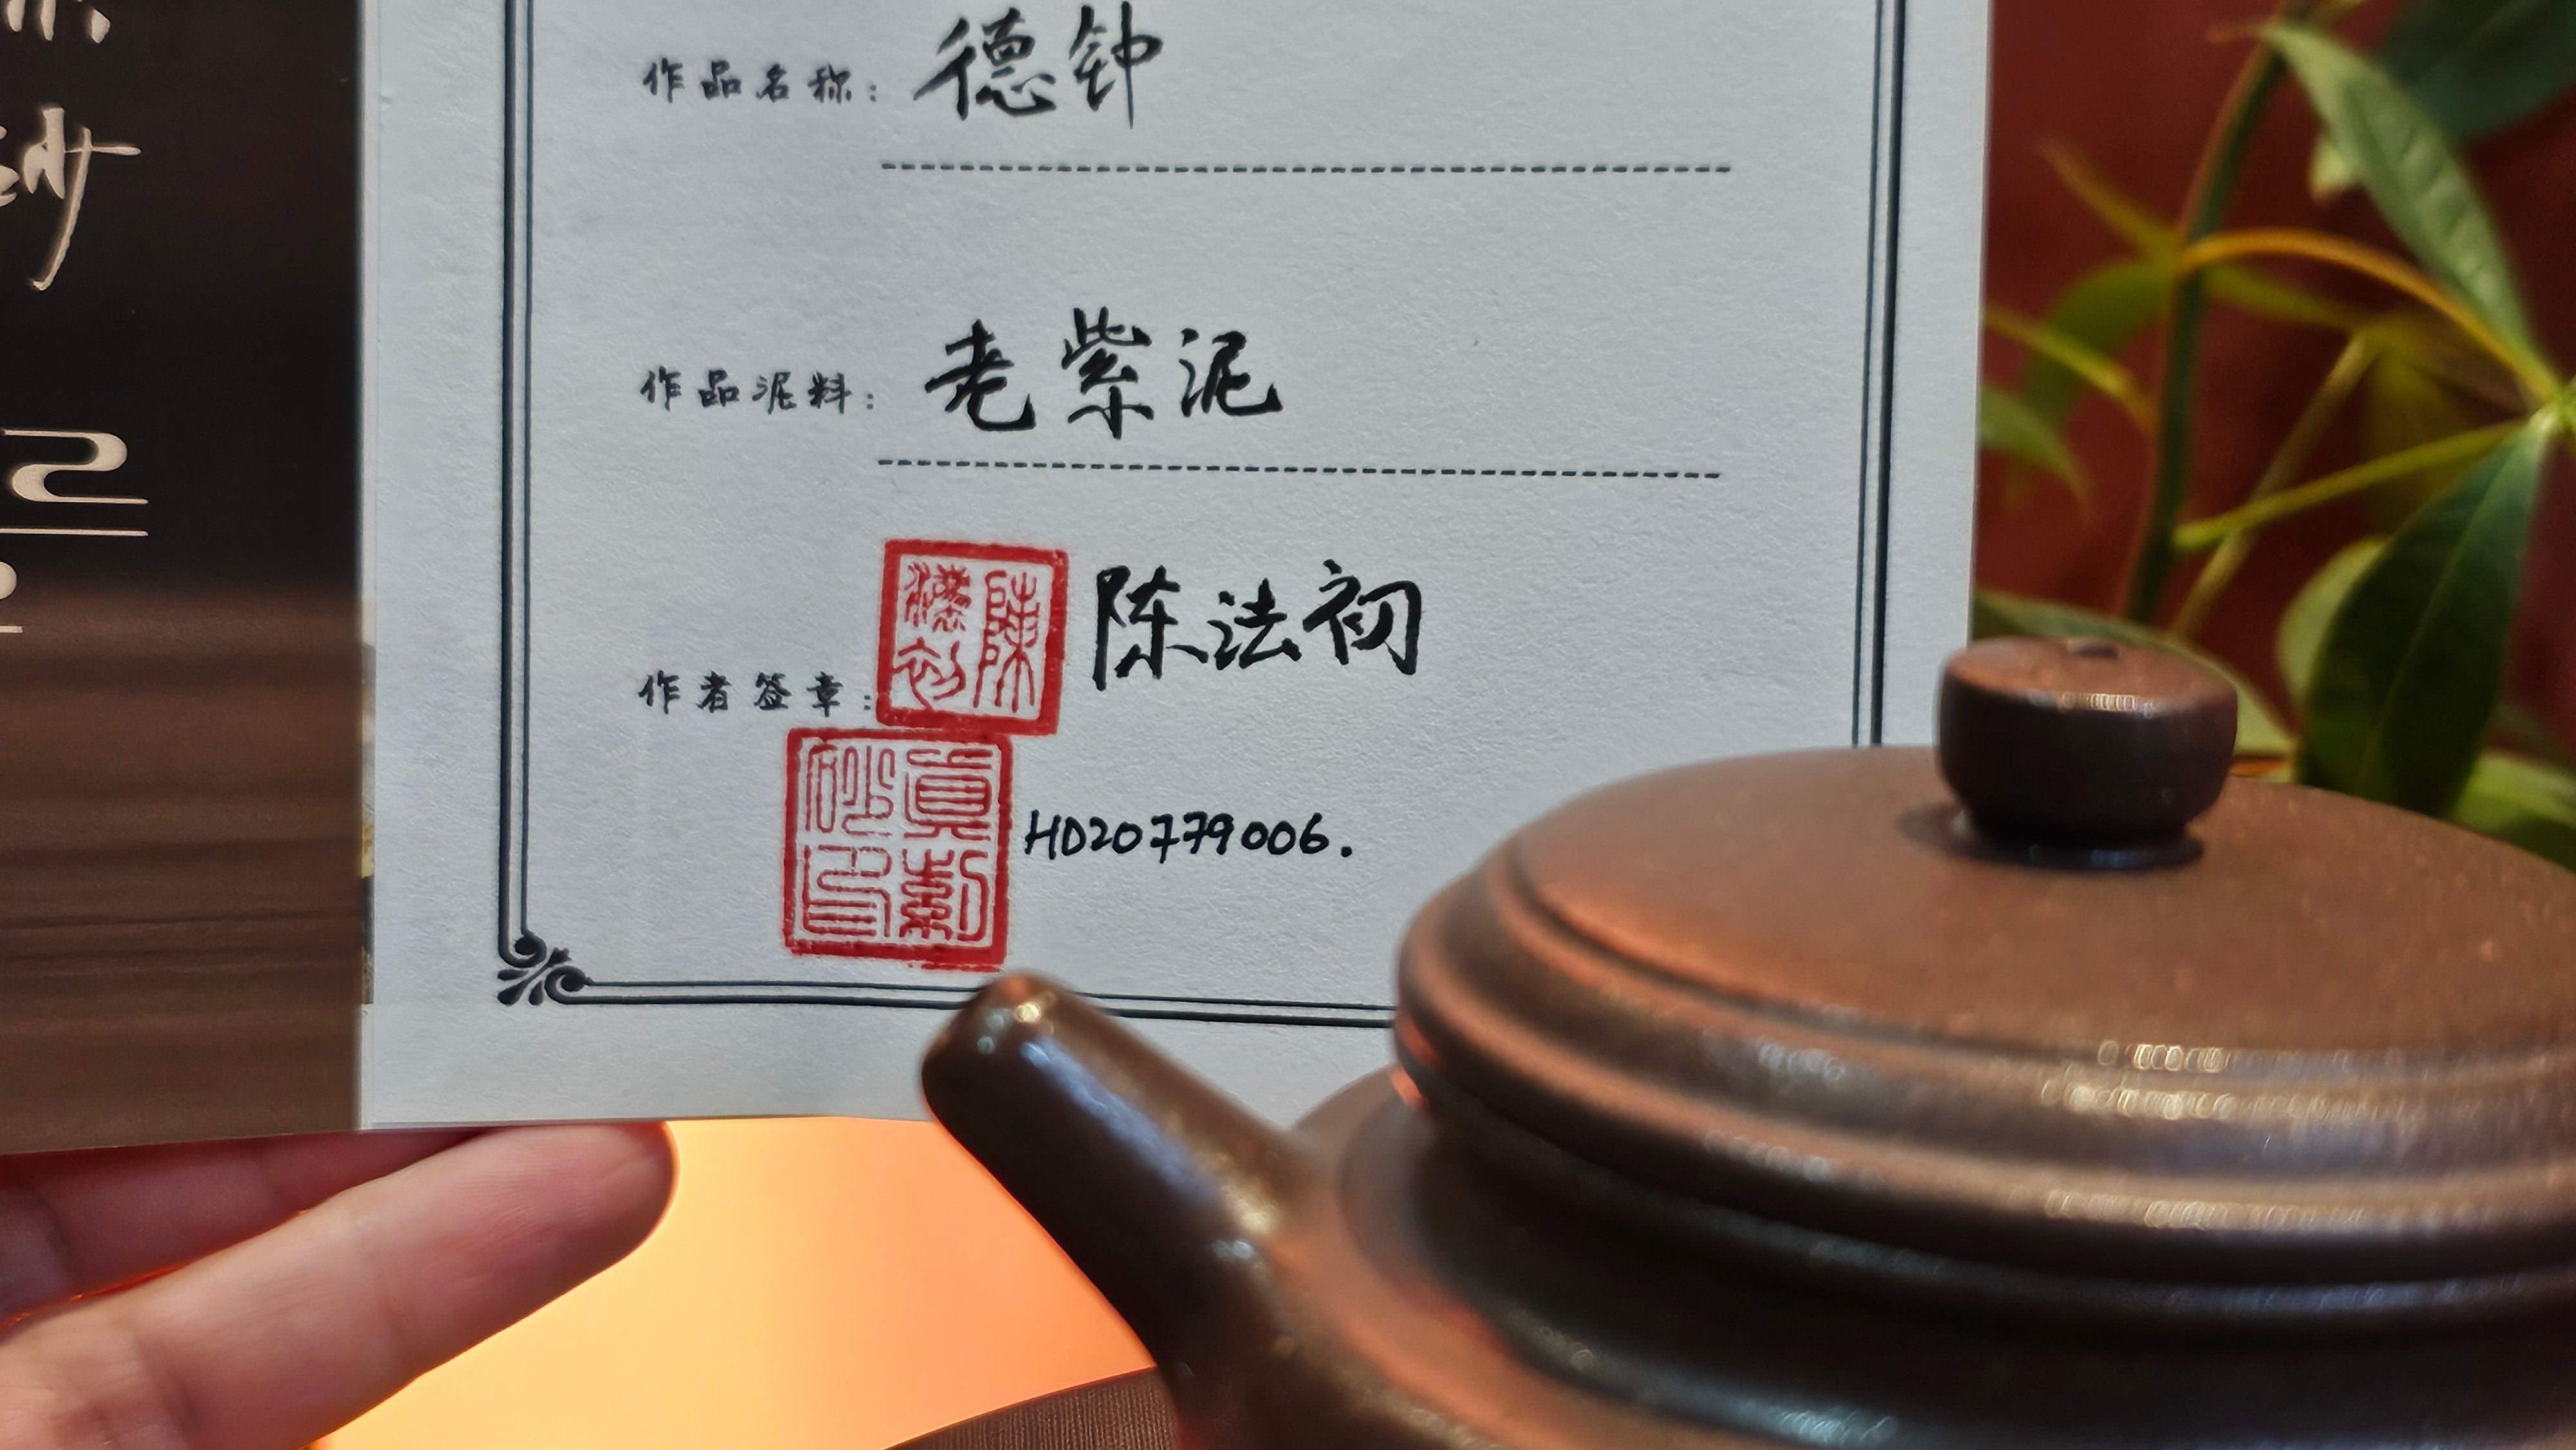 作品名称：德钟
作品泥料：老紫泥
作者签章：陈法初
陳法初
真砂製印
HD20779006.
砂